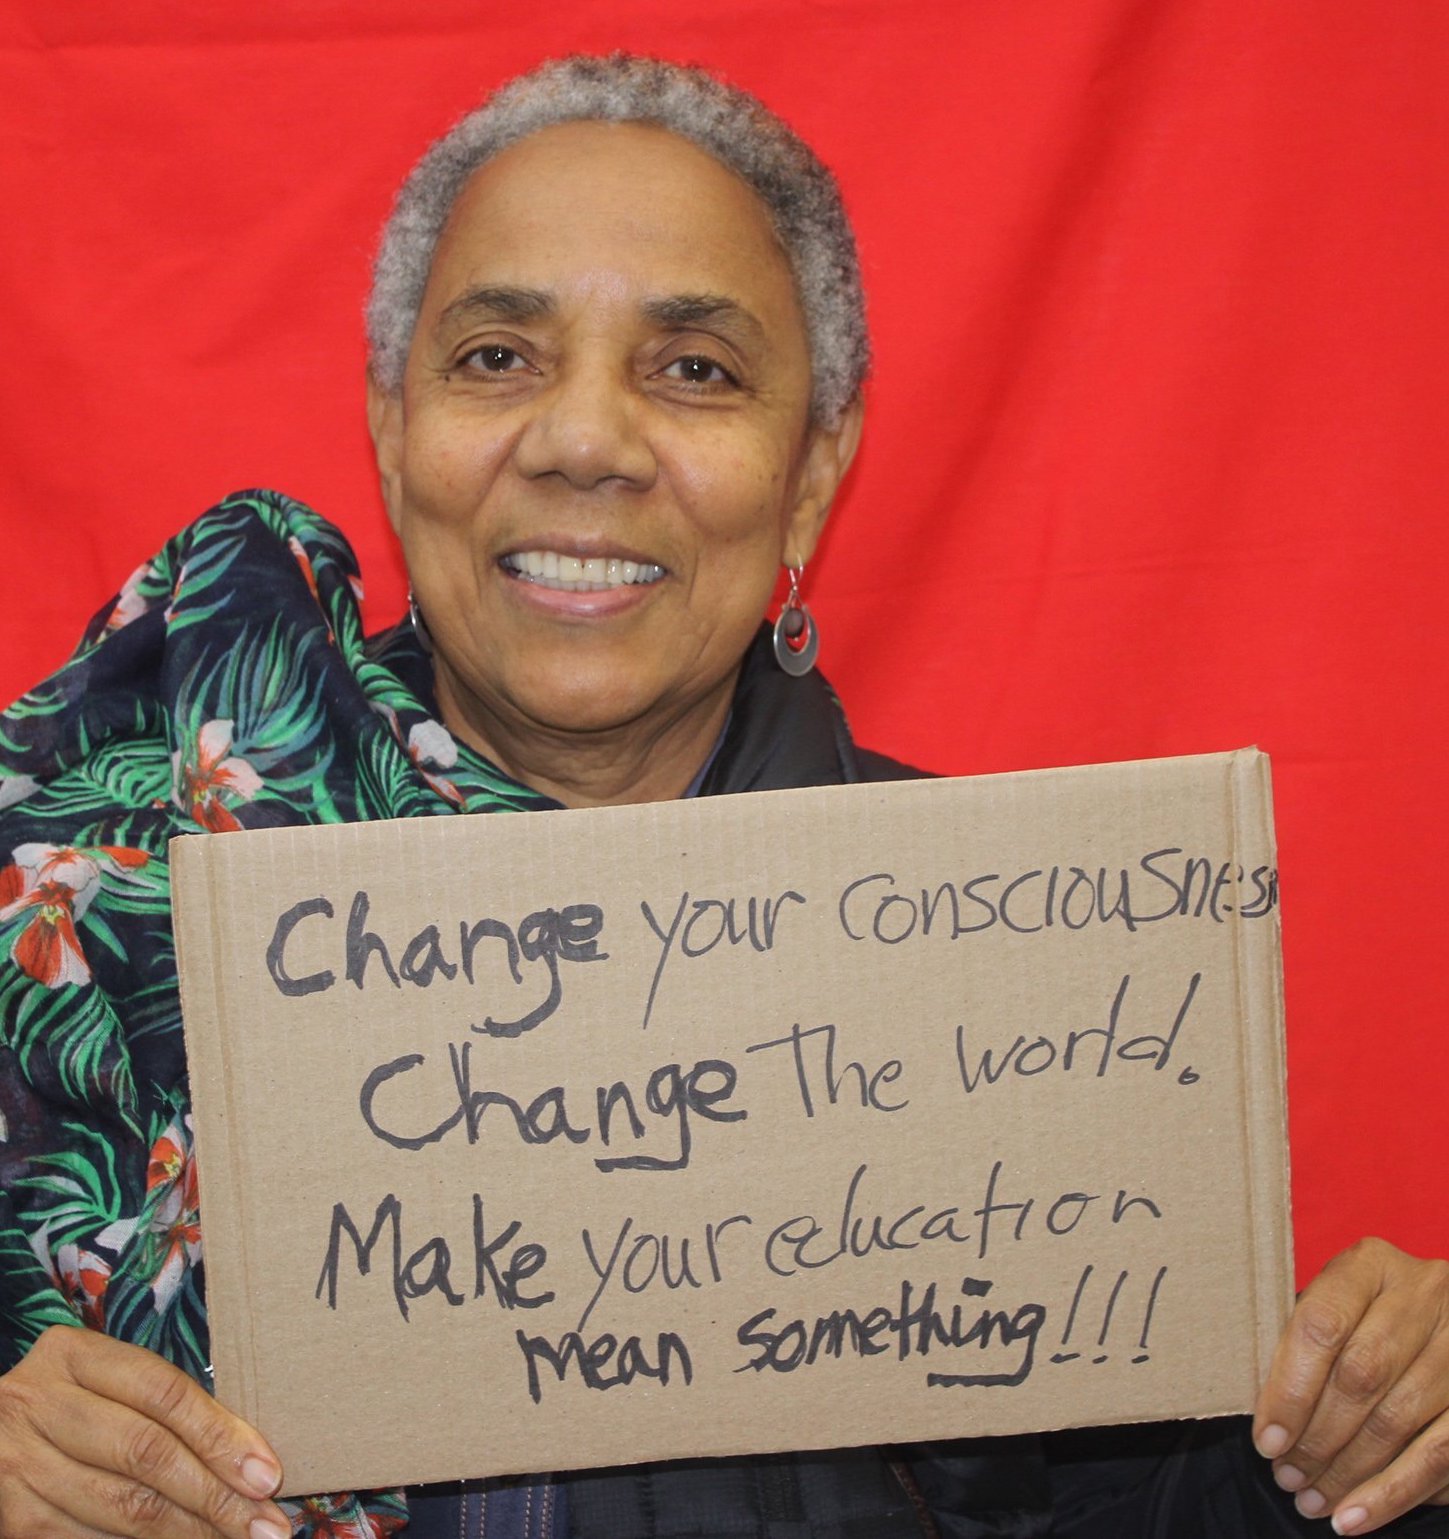 Change your consciousness
Change The world.
Make your education
mean something!!!